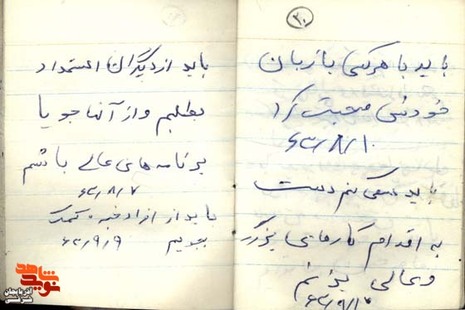 ۳۰
باید با هر کسی با زبان
خودش صحبت کرد
۶۳/۸/۱۰
باید سعی کنم دست
به اقدام کارهای بزرگ
و عالی بزنم
باید از دیگران استمداد
بطلبم و از آنها جویا
برنامه های عالی باشم
۶۳/۸/۷
باید از افراد خبره کمک
بجویم ۶۳/۹/۹
نوید شاهد